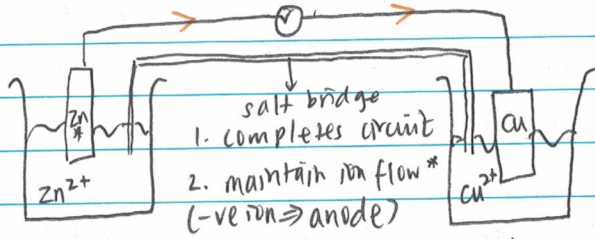 V
salt bridge
1. completes circuit
2. maintain ion flow*
(-ve ion ⇒ anode)
Zn
*
Zn2+
Cu
Cu2+